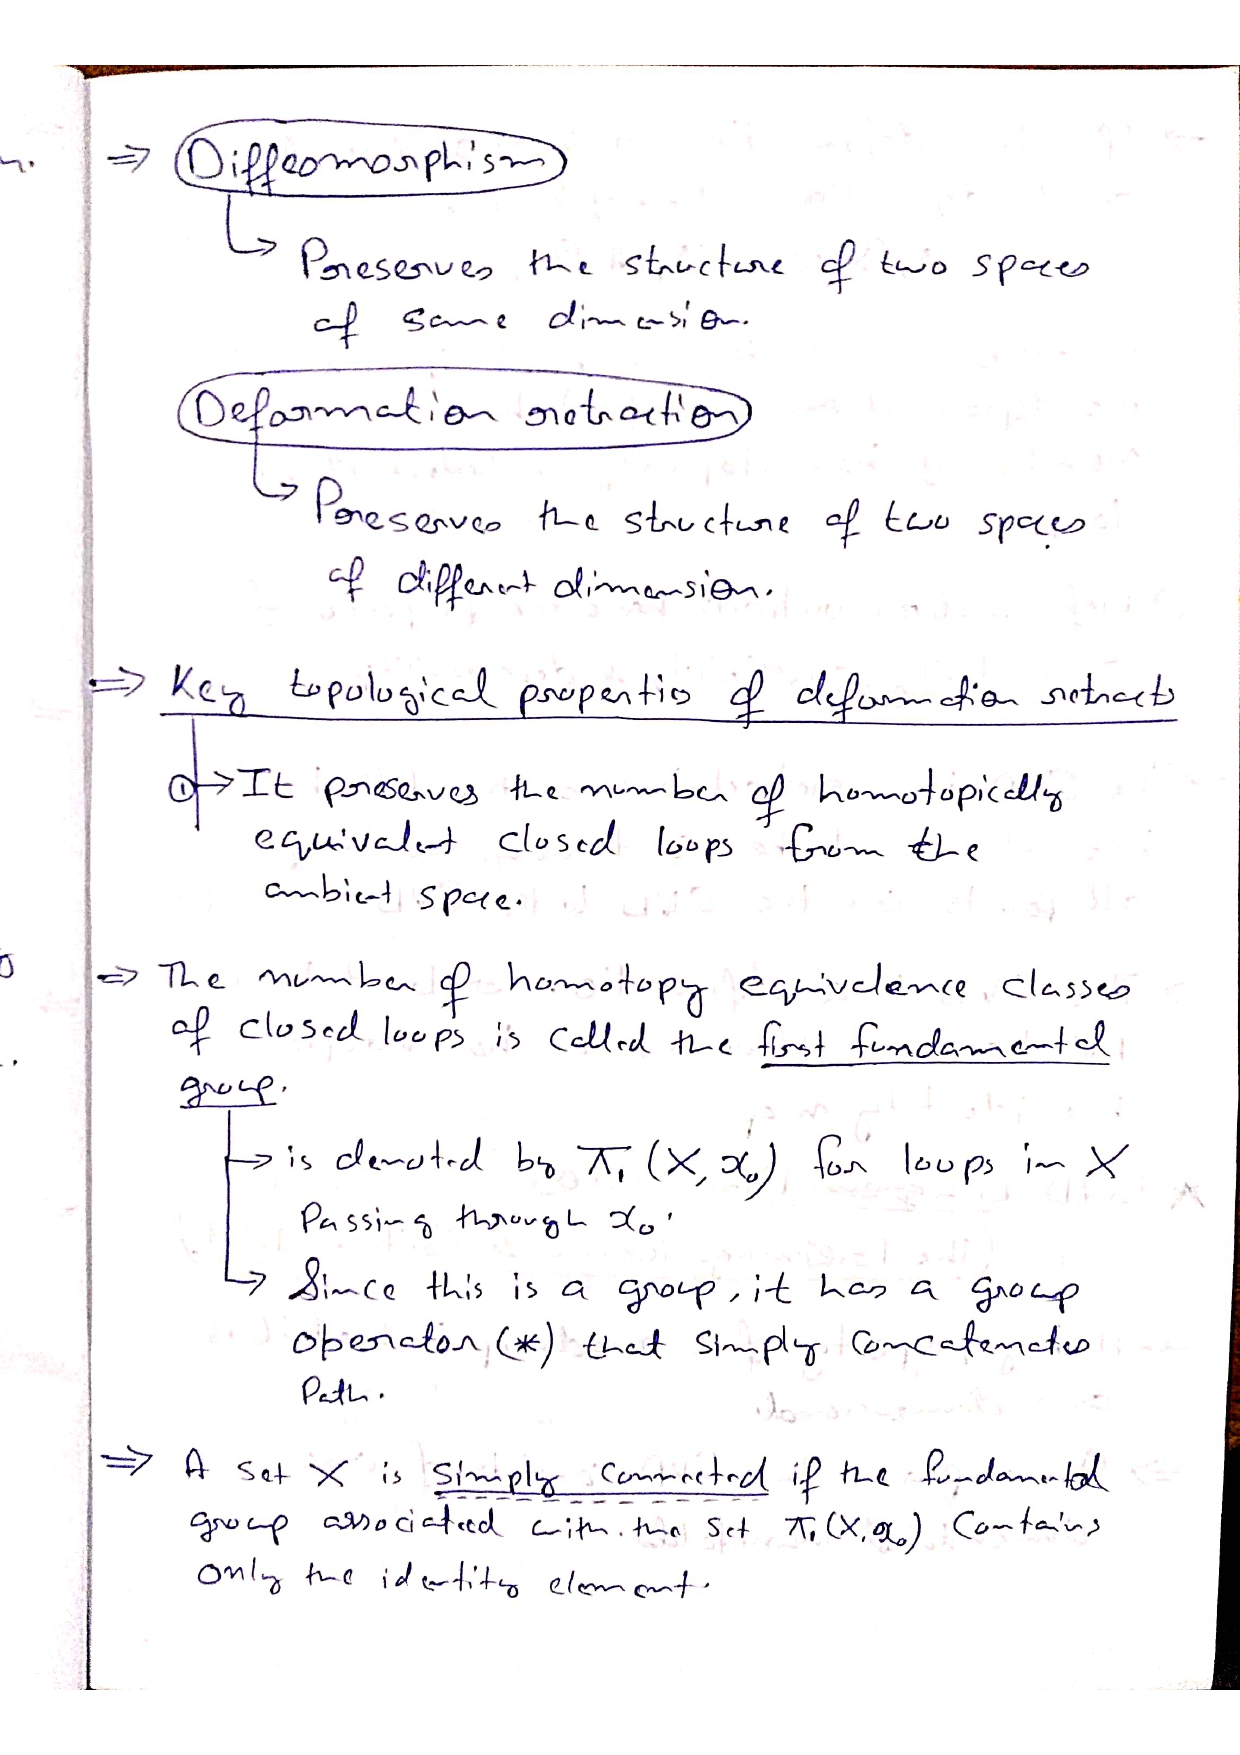 ⇒ Diffeomorphism
↳ Preserves the structure of two spaces
of same dimension.
Deformation retraction
↳ Preserves the structure of two spaces
of different dimension.
⇒ Key topological properties of deformation retracts
① → It preserves the number of homotopically
equivalent closed loops from the
ambient space.
⇒ The number of homotopy equivalence classes
of closed loops is called the first fundamental
group.
→ is denoted by π₁ (X, x₀) for loops in X
Passing through x₀.
↳ Since this is a group, it has a group
operator (*) that simply concatenates
Path.
⇒ A set X is simply connected if the fundamental
group associated with the set π₁ (X, x₀) contains
only the identity element.